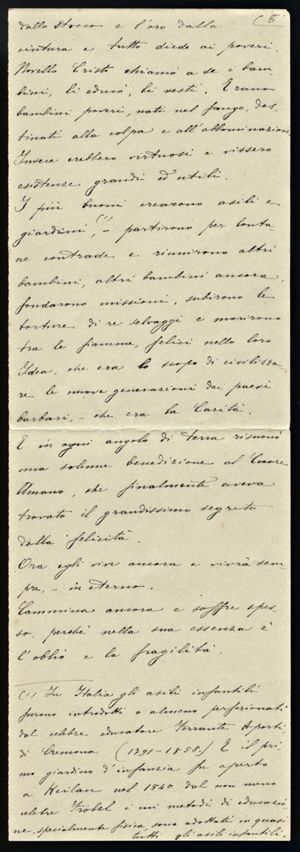 (8
dallo stocco e l'oro dalla
cintura e tutto diede ai poveri.
Novello Cristo chiamò a se i bam-
bini, li educò, li vestì. Erano
bambini poveri, nati nel fango, des-
tinati alla colpa e all'abbominazione.
Invece crebbero virtuosi e vissero
esistenze grandi ed utili.
I più buoni crearono asili e
giardini (1), – partirono per lonta-
ne contrade e riunirono altri
bambini, altri bambini ancora,
fondarono missioni, subirono le
torture di re selvaggi e morirono
tra le fiamme, felici nella loro
Idea, che era lo scopo di civilizza-
re le nuove generazioni dei paesi
barbari, – che era la Carità.
E in ogni angolo di terra risuonò
una solenne benedizione al Cuore
Umano, che finalmente aveva
trovato il grandissimo segreto
della felicità.
Ora egli vive ancora e vivrà sem-
pre, – in eterno.
Cammina ancora e soffre spes-
so, perchè nella sua essenza è
l'oblìo e la fragilità.
(1) In Italia gli asili infantili
furono introdotti o almeno perfezionati
dal celebre educatore Ferrante Aporti,
di Cremona (1791-1858.) E il pri-
mo giardino d'infanzia fu aperto
a Keilau nel 1840 dal non meno
celebre Fröbel i cui metodi di educazio-
ne, specialmente fisica, sono adottati in quasi
tutti gli asili infantili.